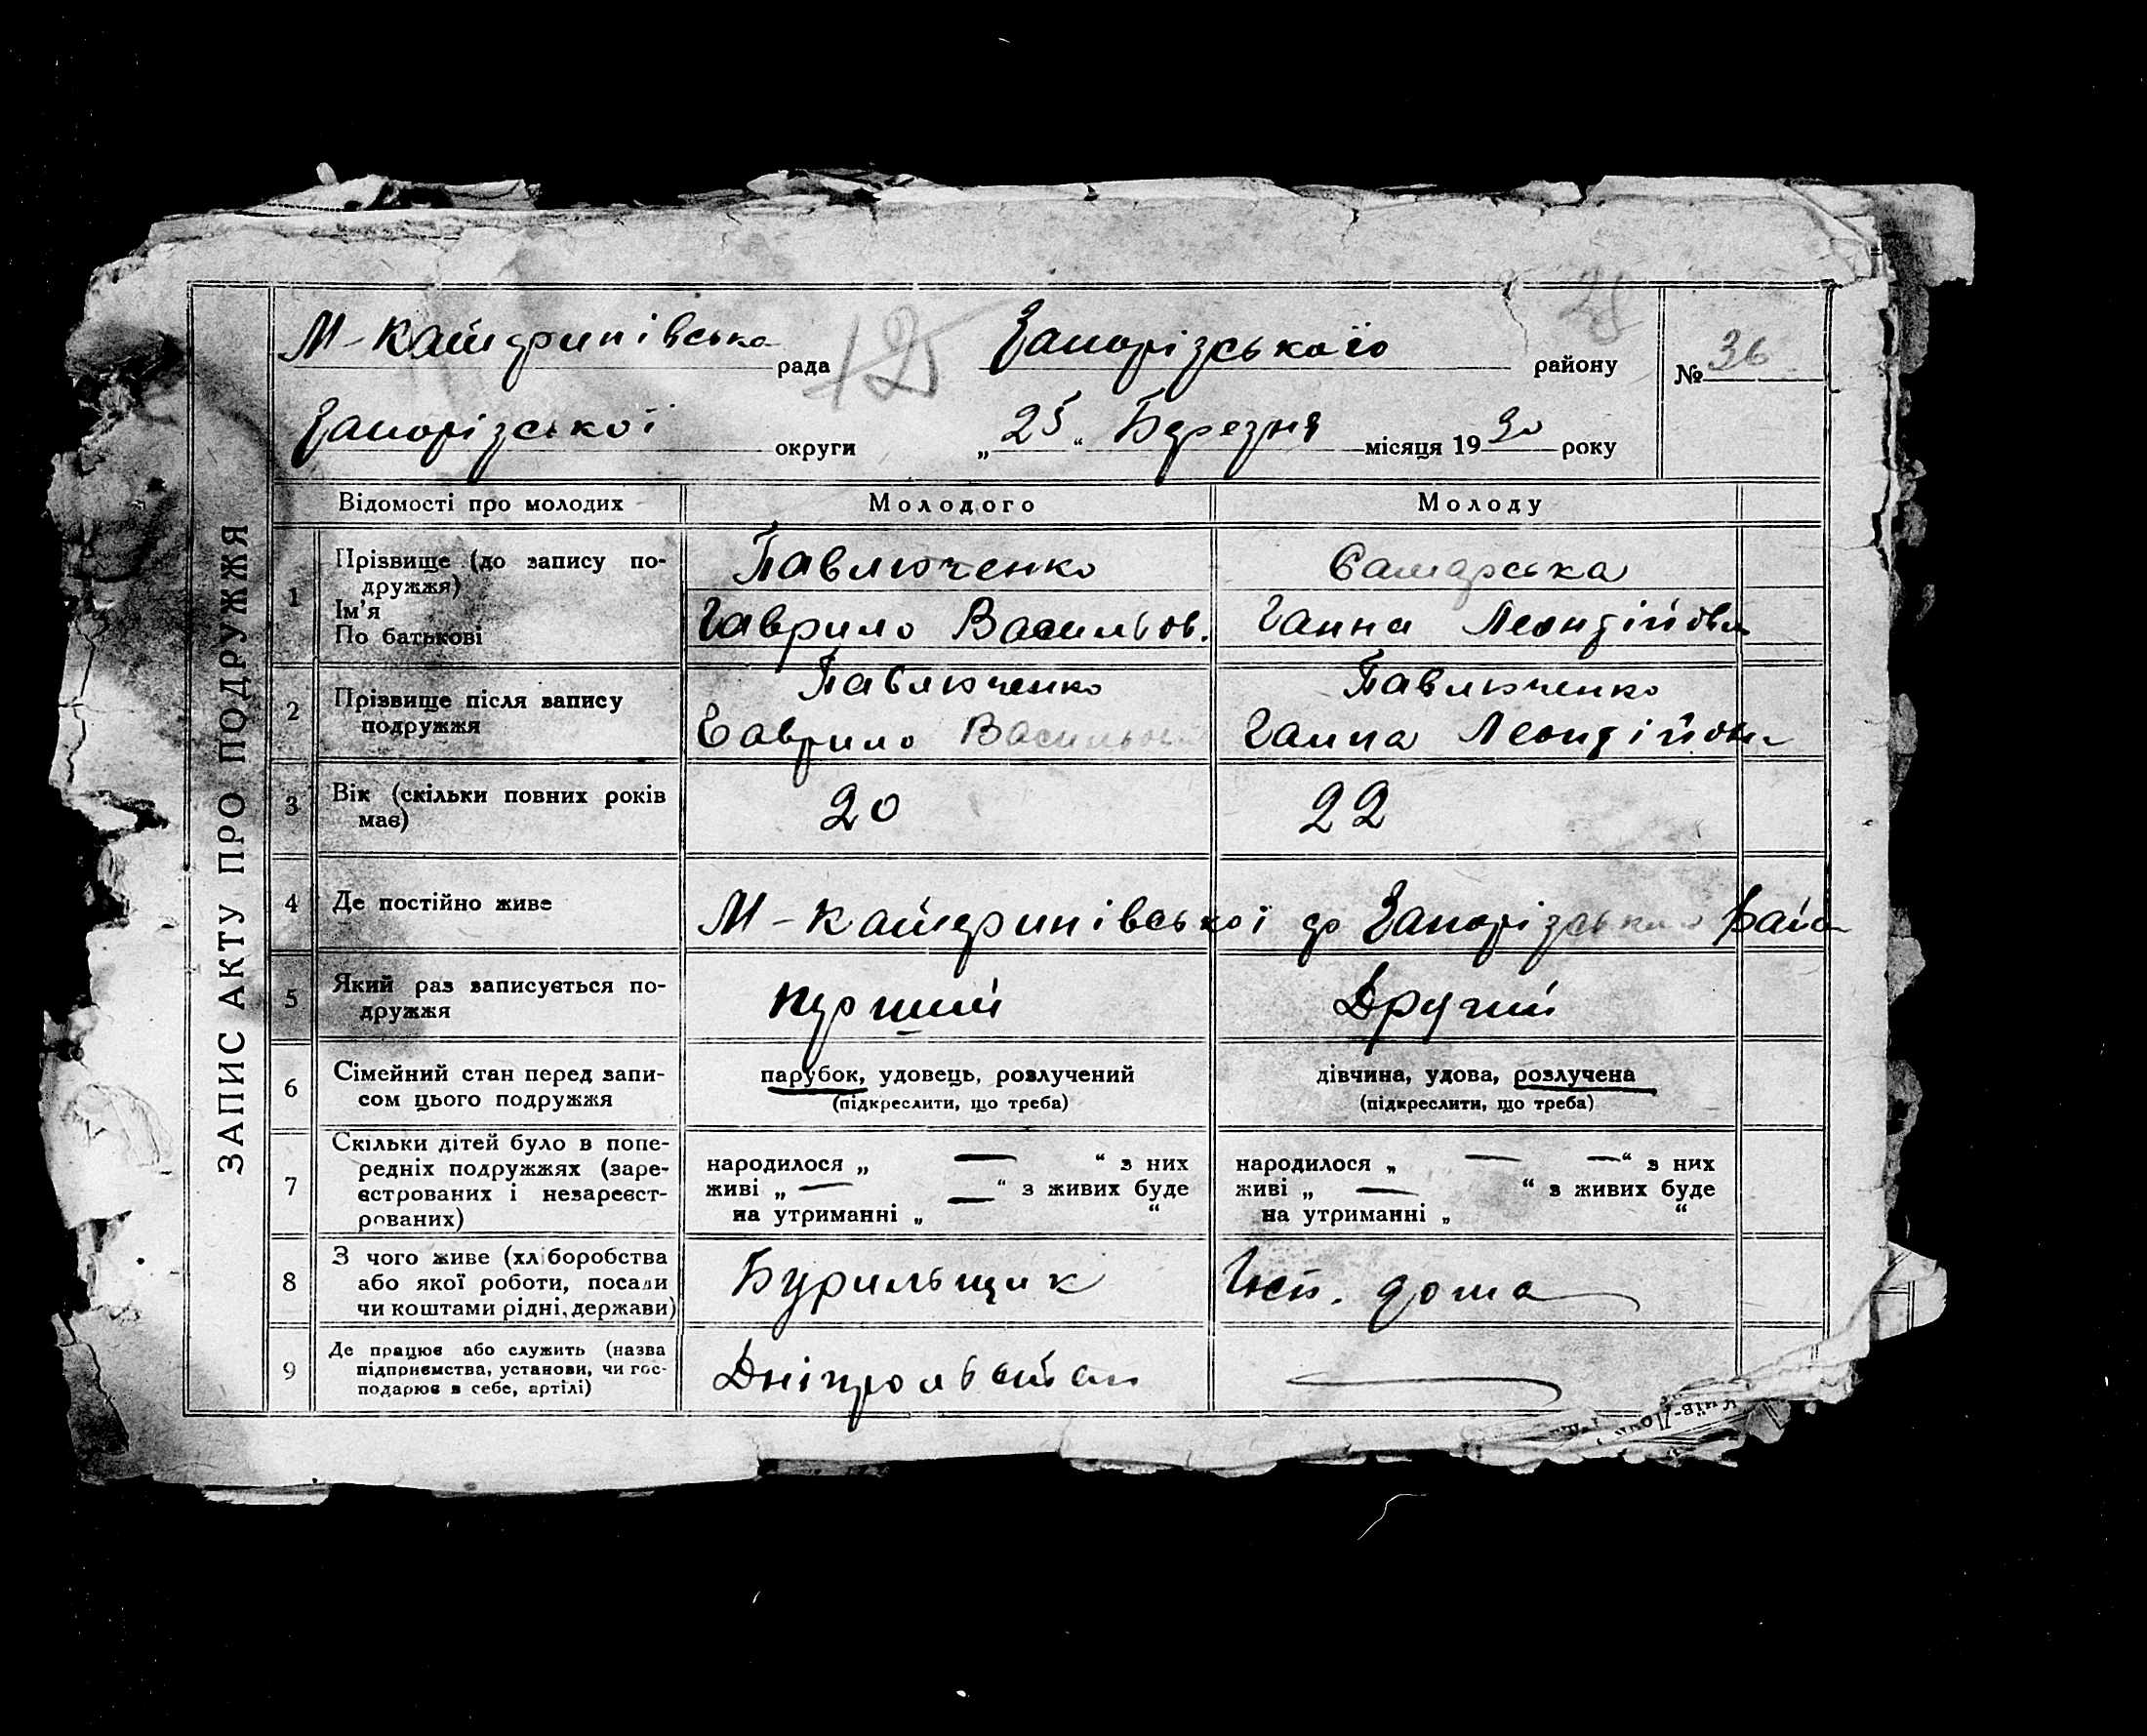 ЗАПИС АКТУ ПРО ПОДРУЖЖЯ
М-Катеринівська рада 125 Запорізського району 28 № 36
Запорізської округи „25“ Березня місяця 1930 року
Відомості про молодих Молодого Молоду
1 Прізвище (до запису по-
дружжя)
Ім'я
По батькові
Павлюченко Самарська
Гаврило Васильов. Ганна Леонтійовн
2 Прізвище після запису
подружжя
Павлюченко Павлюченко
Гаврило Васильов Ганна Леонтійовн
3 Вік (скільки повних років
має)
20 22
4 Де постійно живе М-Катеринівської с/р Запорізського
5 Який раз записується по-
дружжя
перший Другий
6 Сімейний стан перед запи-
сом цього подружжя
парубок, удовець, розлучений дівчина, удова, розлучена
(підкреслити, що треба) (підкреслити, що треба)
7 Скільки дітей було в попе-
редніх подружжях (заре-
єстрованих і незареєст-
рованих)
народилося „ — “ з них народилося „ — — “ з них
живі „ — — “ з живих буде живі „ — “ з живих буде
на утриманні „ “ на утриманні „ “
8 З чого живе (хліборобства
або якої роботи, посади
чи коштами рідні, держави)
Бурильщик дома
9 Де працює або служить (назва
підприємства, установи, чи гос-
подарює в себе, артілі)
—